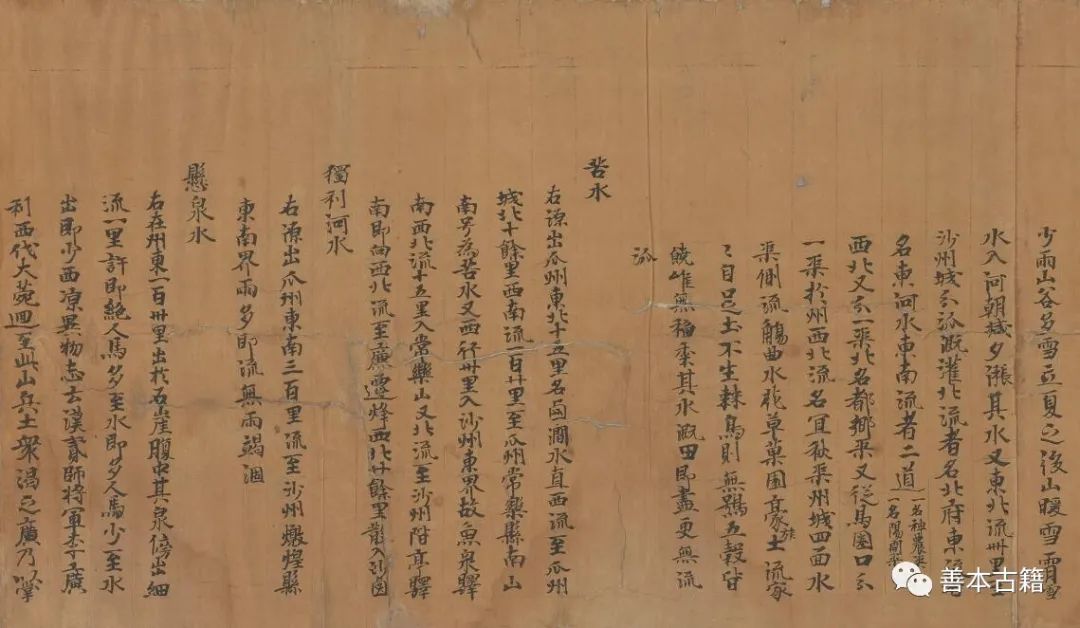 少雨山谷多雪立夏之後山暖雪消雪
水入河朝減夕漲其水又東北流卌里至
沙州城分流溉灌北流者名北府東流者
名東河水東南流者二道一名神農渠一名陽開渠
西北又分一渠北名都鄉渠又從馬圈口分
一渠於州西北流名宜秋渠州城四面水
渠側流觴曲水花草菓園豪族士流家
〻自足土不生棘鳥則無鶚五穀皆
饒唯無稻黍其水溉田即盡更無流
派
苦水
右源出瓜州東北十五里名鹵澗水直西流至瓜州
城北十餘里西南流一百廿里至瓜州常樂縣南山
南号為苦水又西行卅里入沙州東界故魚泉驛
南西北流十五里入常樂山又北流至沙州階亭驛
南即向西北流至廣顯烽西北廿餘里散入沙鹵
獨利河水
右源出瓜州東南三百里流至沙州燉煌縣
東南界雨多即流無雨竭涸
懸泉水
右在州東一百卅里出於石崖腹中其泉傍出細
流一里許即絕人馬多至水即多人馬少至水
出即少西涼異物志云漢貳師將軍李廣
利西伐大菀迴至此山兵士衆渴乏廣乃以掌
善本古籍